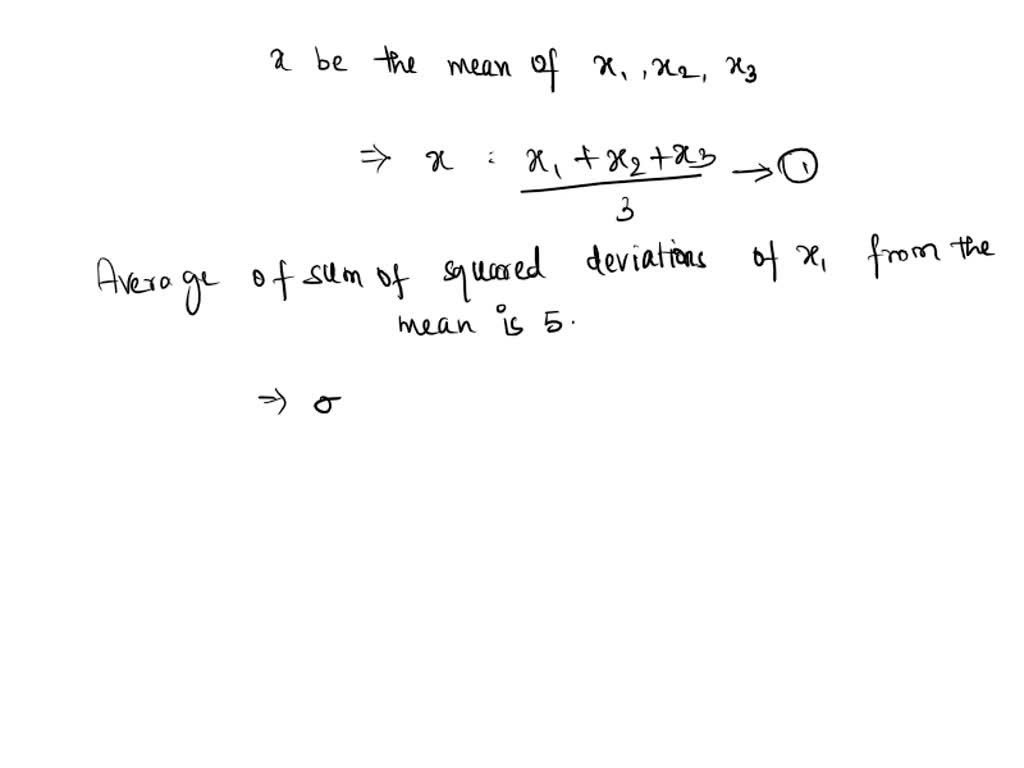 x be the mean of x₁, x₂, x₃
⇒ x : x₁ + x₂ + x₃ → ①
3
Average of sum of squared deviations of x₁ from the
mean is 5.
⇒ σ